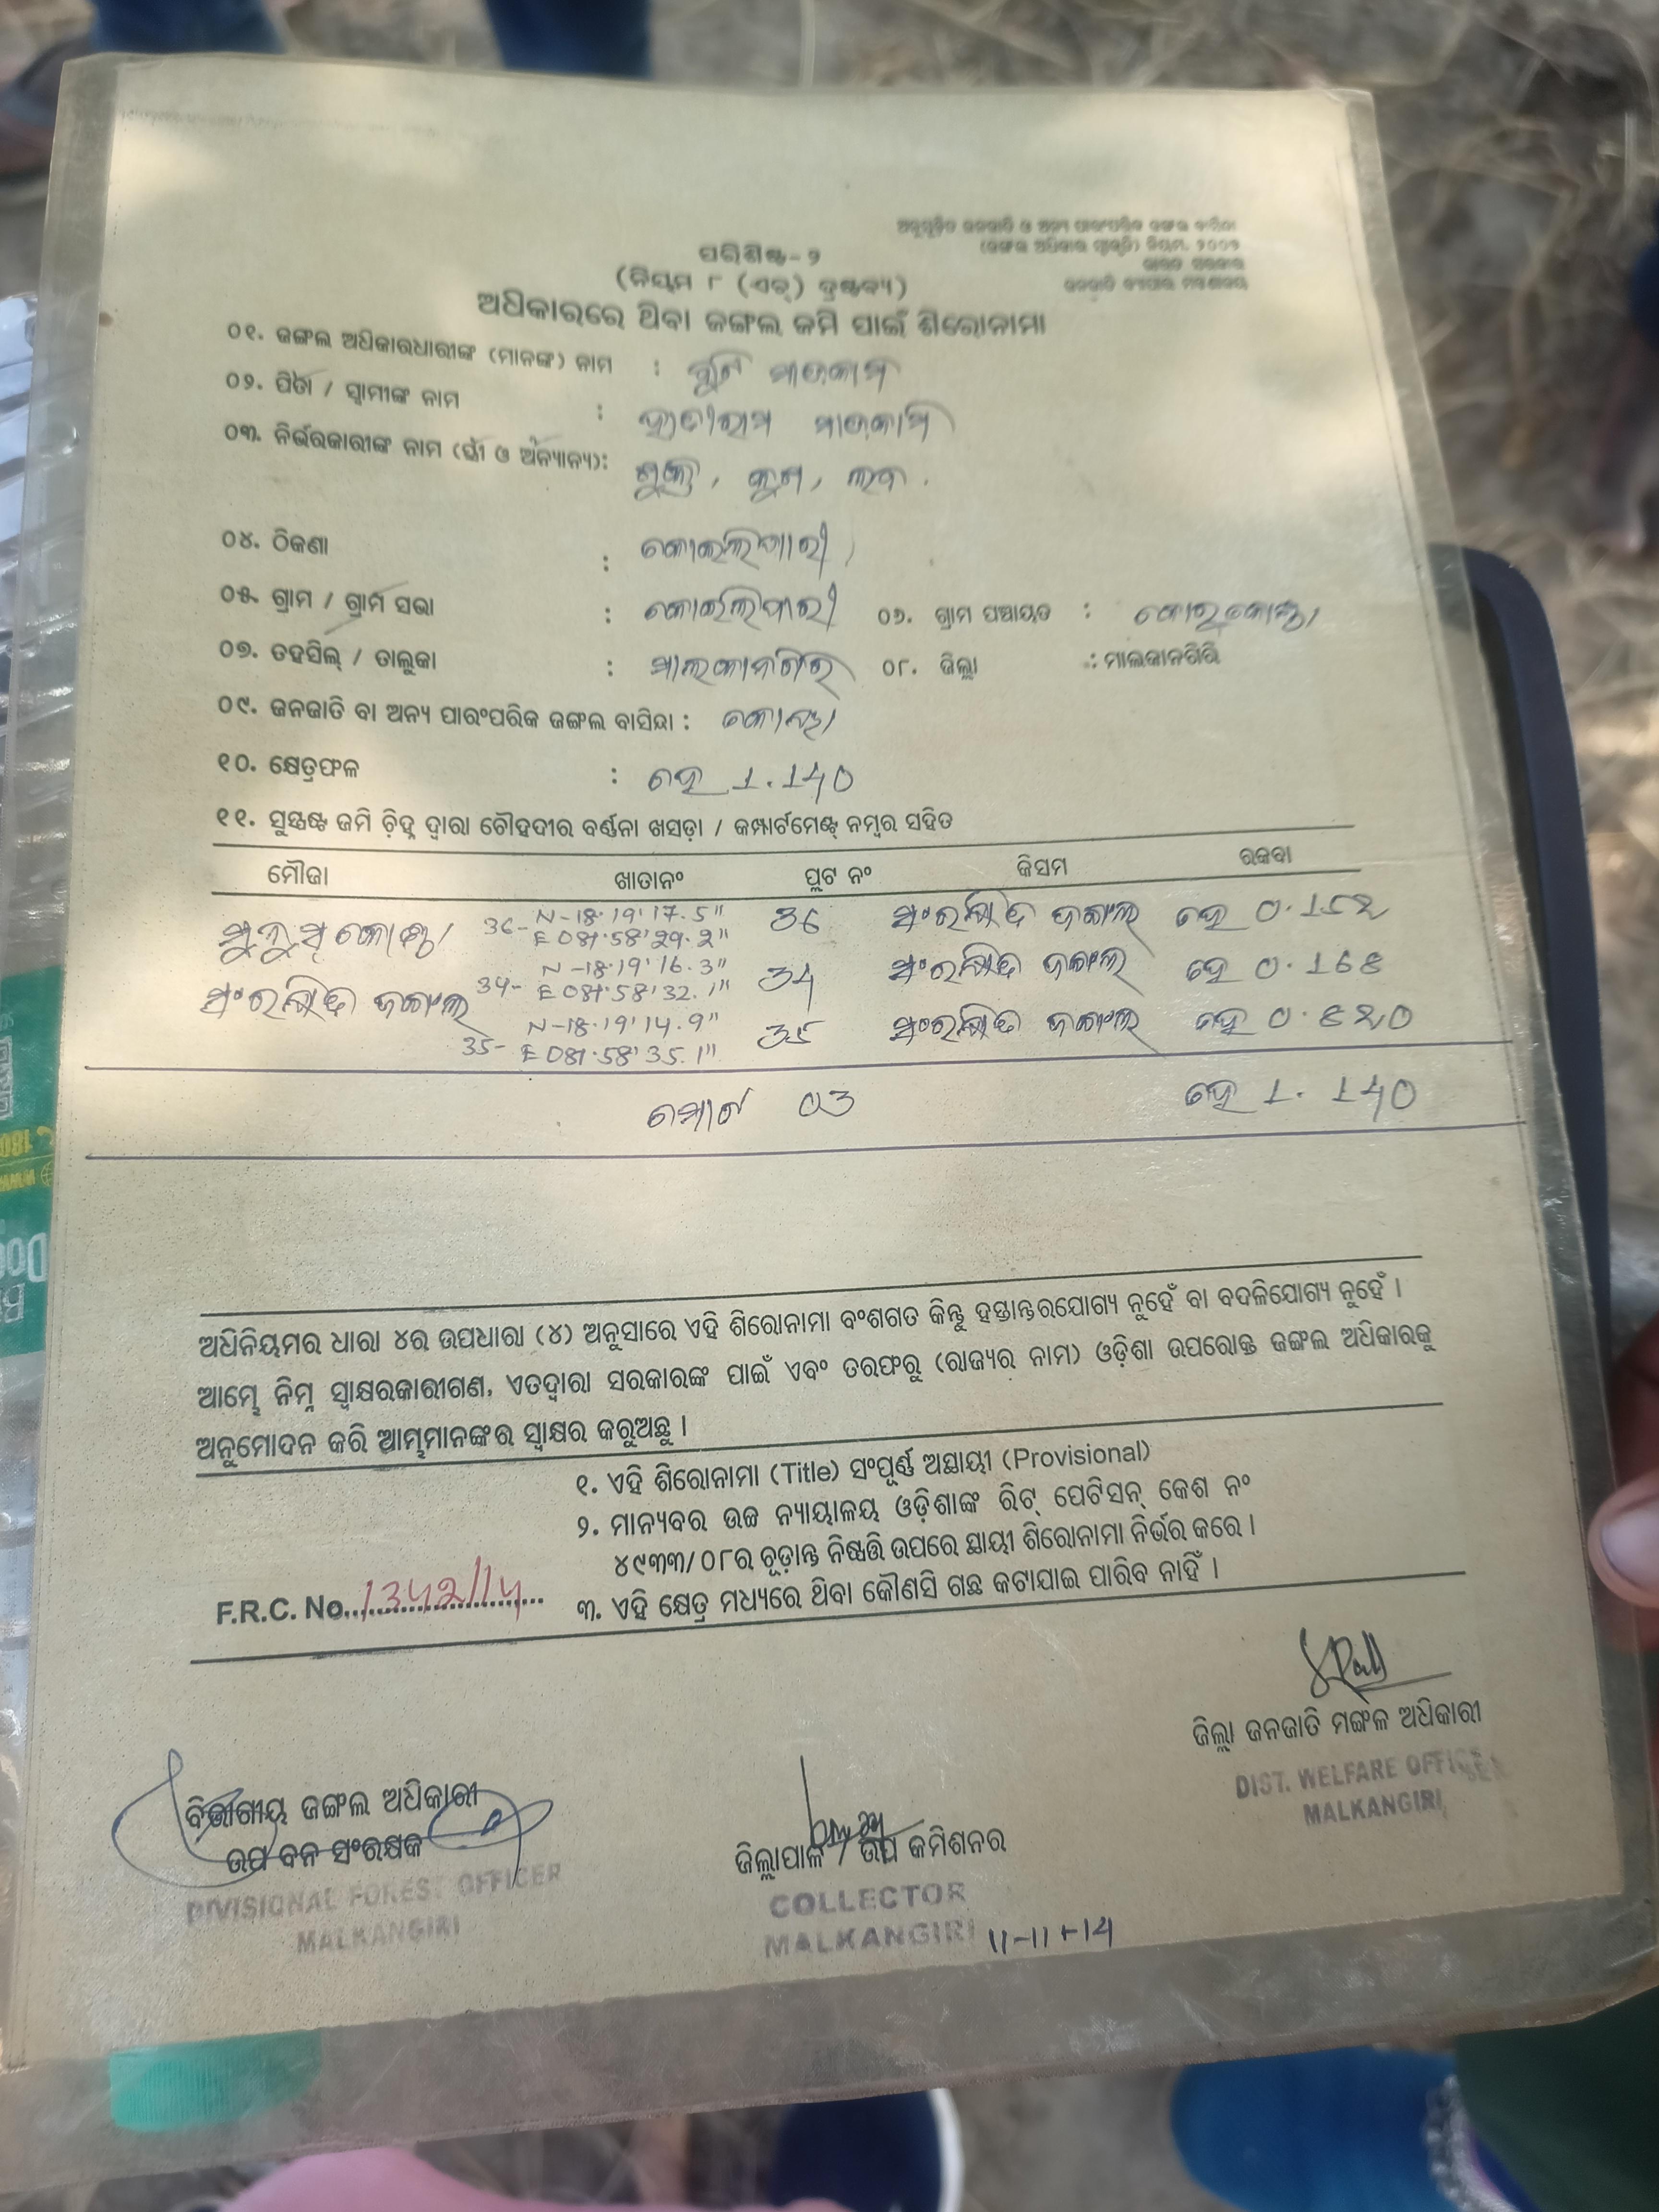 ଅନୁସୂଚିତ ଜନଜାତି ଓ ଅନ୍ୟ ପାରଂପରିକ ଜଙ୍ଗଲ ବାସିନ୍ଦା
(ଜଙ୍ଗଲ ଅଧିକାର ସ୍ବୀକୃତି) ନିୟମ, ୨୦୦୭
ଭାରତ ସରକାର
ଜନଜାତି ବ୍ୟାପାର ମନ୍ତ୍ରଣାଳୟ
ପରିଶିଷ୍ଟ-୨
(ନିୟମ ୮ (ଏଚ୍) ଦ୍ରଷ୍ଟବ୍ୟ)
ଅଧିକାରରେ ଥିବା ଜଙ୍ଗଲ ଜମି ପାଇଁ ଶିରୋନାମା
୦୧. ଜଙ୍ଗଲ ଅଧିକାରଧାରୀଙ୍କ (ମାନଙ୍କ) ନାମ :
୦୨. ପିତା / ସ୍ୱାମୀଙ୍କ ନାମ :
୦୩. ନିର୍ଭରକାରୀଙ୍କ ନାମ (ସ୍ତ୍ରୀ ଓ ଅନ୍ୟାନ୍ୟ):
୦୪. ଠିକଣା : କୋଇଲିପାରୀ
୦୫. ଗ୍ରାମ / ଗ୍ରାମ ସଭା : କୋଇଲିପାରୀ ୦୬. ଗ୍ରାମ ପଞ୍ଚାୟତ : କୋରୁକୋଣ୍ଡା
୦୭. ତହସିଲ୍ / ତାଲୁକା : ମାଲକାନଗିରି ୦୮. ଜିଲ୍ଲା : ମାଲକାନଗିରି
୦୯. ଜନଜାତି ବା ଅନ୍ୟ ପାରଂପରିକ ଜଙ୍ଗଲ ବାସିନ୍ଦା : କୋୟା
୧୦. କ୍ଷେତ୍ରଫଳ : ହେ 1.140
୧୧. ସୁସ୍ପଷ୍ଟ ଜମି ଚିହ୍ନ ଦ୍ୱାରା ଚୌହଦୀର ବର୍ଣ୍ଣନା ଖସଡ଼ା / କମ୍ପାର୍ଟମେଣ୍ଟ ନମ୍ବର ସହିତ
ମୌଜା ଖାତାନଂ ପ୍ଲଟ ନଂ କିସମ ରକବା
36- N-18·19'17.5" E 081·58'29.2" 36 ସଂରକ୍ଷିତ ଜଙ୍ଗଲ ହେ 0.152
ସଂରକ୍ଷିତ ଜଙ୍ଗଲ 34- N-18·19'16.3" E 081·58'32.1" 34 ସଂରକ୍ଷିତ ଜଙ୍ଗଲ ହେ 0.168
35- N-18·19'14.9" E 081·58'35.1" 35 ସଂରକ୍ଷିତ ଜଙ୍ଗଲ ହେ 0.820
ମୋଟ 03 ହେ 1.140
ଅଧିନିୟମର ଧାରା ୪ର ଉପଧାରା (୪) ଅନୁସାରେ ଏହି ଶିରୋନାମା ବଂଶଗତ କିନ୍ତୁ ହସ୍ତାନ୍ତରଯୋଗ୍ୟ ନୁହେଁ ବା ବଦଳିଯୋଗ୍ୟ ନୁହେଁ ।
ଆମ୍ଭେ ନିମ୍ନ ସ୍ୱାକ୍ଷରକାରୀଗଣ, ଏତଦ୍ଦ୍ୱାରା ସରକାରଙ୍କ ପାଇଁ ଏବଂ ତରଫରୁ (ରାଜ୍ୟର ନାମ) ଓଡ଼ିଶା ଉପରୋକ୍ତ ଜଙ୍ଗଲ ଅଧିକାରକୁ
ଅନୁମୋଦନ କରି ଆମ୍ଭମାନଙ୍କର ସ୍ୱାକ୍ଷର କରୁଅଛୁ ।
୧. ଏହି ଶିରୋନାମା (Title) ସଂପୂର୍ଣ୍ଣ ଅସ୍ଥାୟୀ (Provisional)
୨. ମାନ୍ୟବର ଉଚ୍ଚ ନ୍ୟାୟାଳୟ ଓଡ଼ିଶାଙ୍କ ରିଟ୍ ପେଟିସନ୍ କେଶ ନଂ
୪୯୩୩/୦୮ର ଚୂଡ଼ାନ୍ତ ନିଷ୍ପତ୍ତି ଉପରେ ସ୍ଥାୟୀ ଶିରୋନାମା ନିର୍ଭର କରେ ।
୩. ଏହି କ୍ଷେତ୍ର ମଧ୍ୟରେ ଥିବା କୌଣସି ଗଛ କଟାଯାଇ ପାରିବ ନାହିଁ ।
F.R.C. No. 1342/14
ଜିଲ୍ଲା ଜନଜାତି ମଙ୍ଗଳ ଅଧିକାରୀ
DIST. WELFARE OFFICER
MALKANGIRI
ବିଭାଗୀୟ ଜଙ୍ଗଲ ଅଧିକାରୀ
ଉପ ବନ ସଂରକ୍ଷକ
DIVISIONAL FOREST OFFICER
MALKANGIRI
ଜିଲ୍ଲାପାଳ / ଉପ କମିଶନର
COLLECTOR
MALKANGIRI 11-11-14